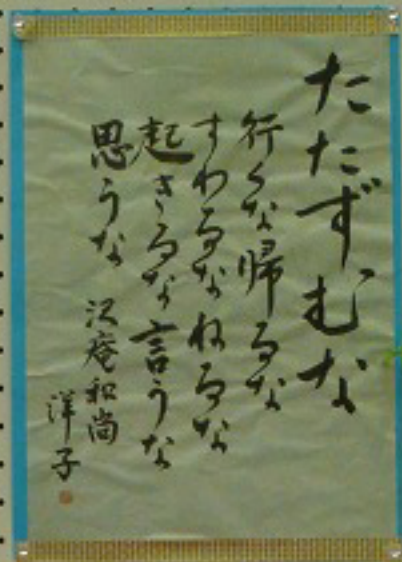 たたずむな
行くな帰るな
すわるなねるな
起きるな言うな
思うな
沢庵和尚
洋子